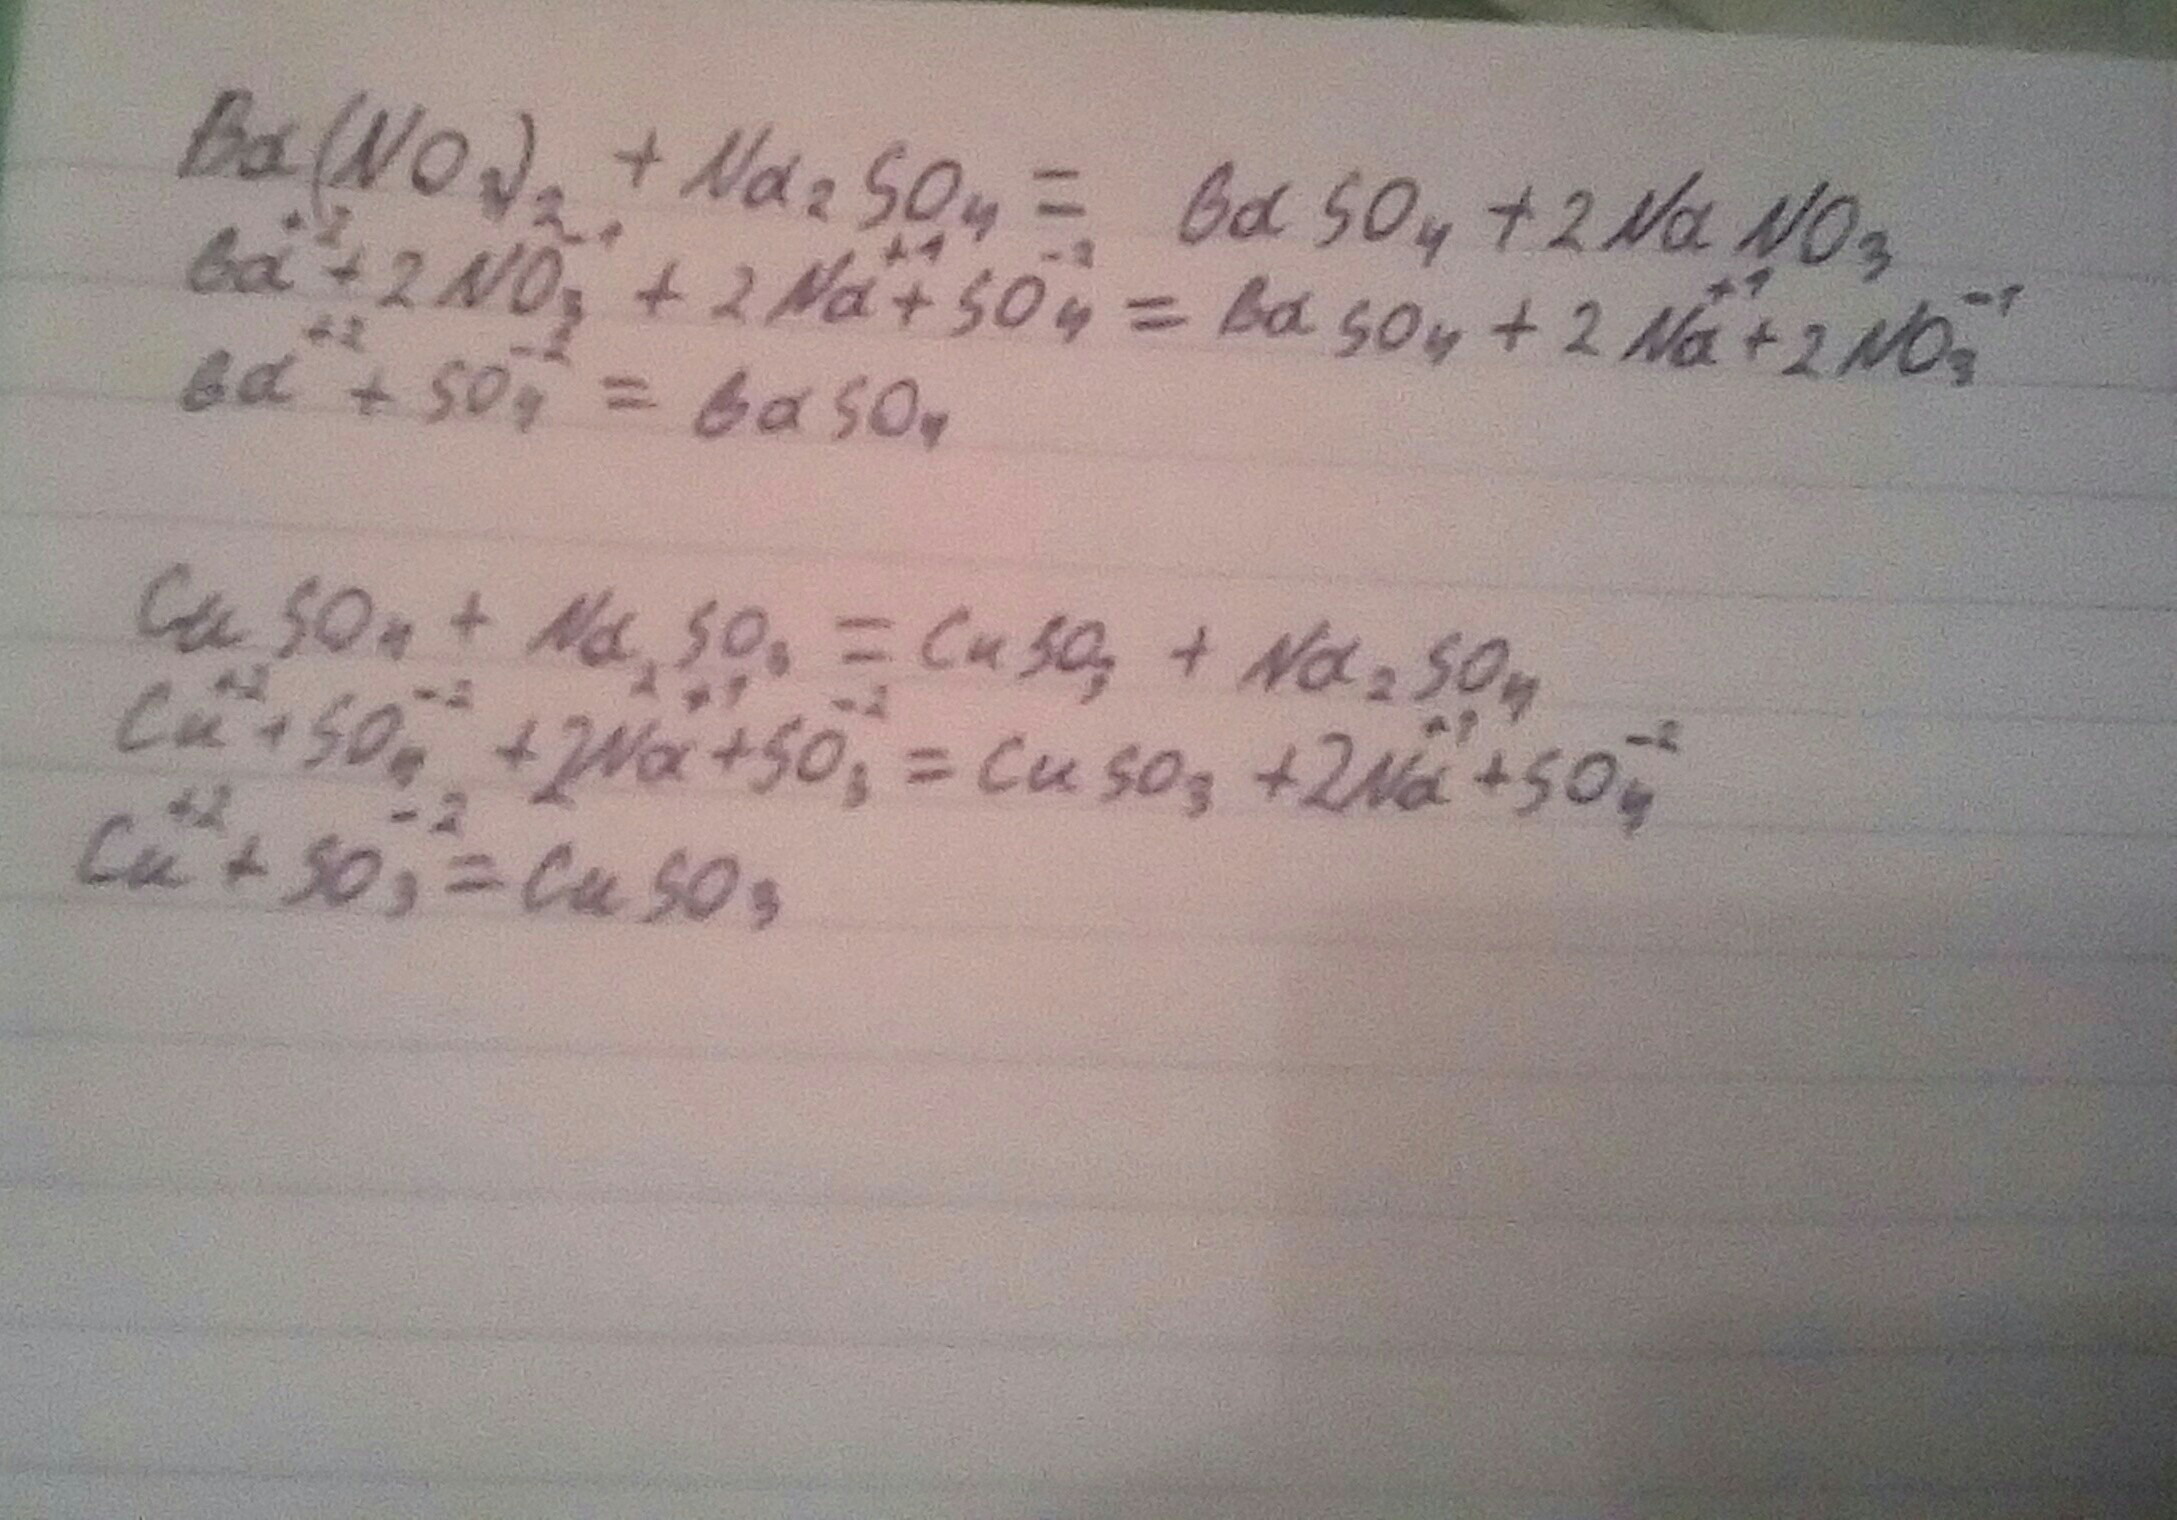 Ba(NO₃)₂ + Na₂SO₄ = BaSO₄ + 2NaNO₃
Ba⁺² + 2NO₃⁻¹ + 2Na⁺¹ + SO₄⁻² = BaSO₄ + 2Na⁺¹ + 2NO₃⁻¹
Ba⁺² + SO₄⁻² = BaSO₄
CuSO₄ + Na₂SO₃ = CuSO₃ + Na₂SO₄
Cu⁺² + SO₄⁻² + 2Na⁺¹ + SO₃⁻² = CuSO₃ + 2Na⁺¹ + SO₄⁻²
Cu⁺² + SO₃⁻² = CuSO₃